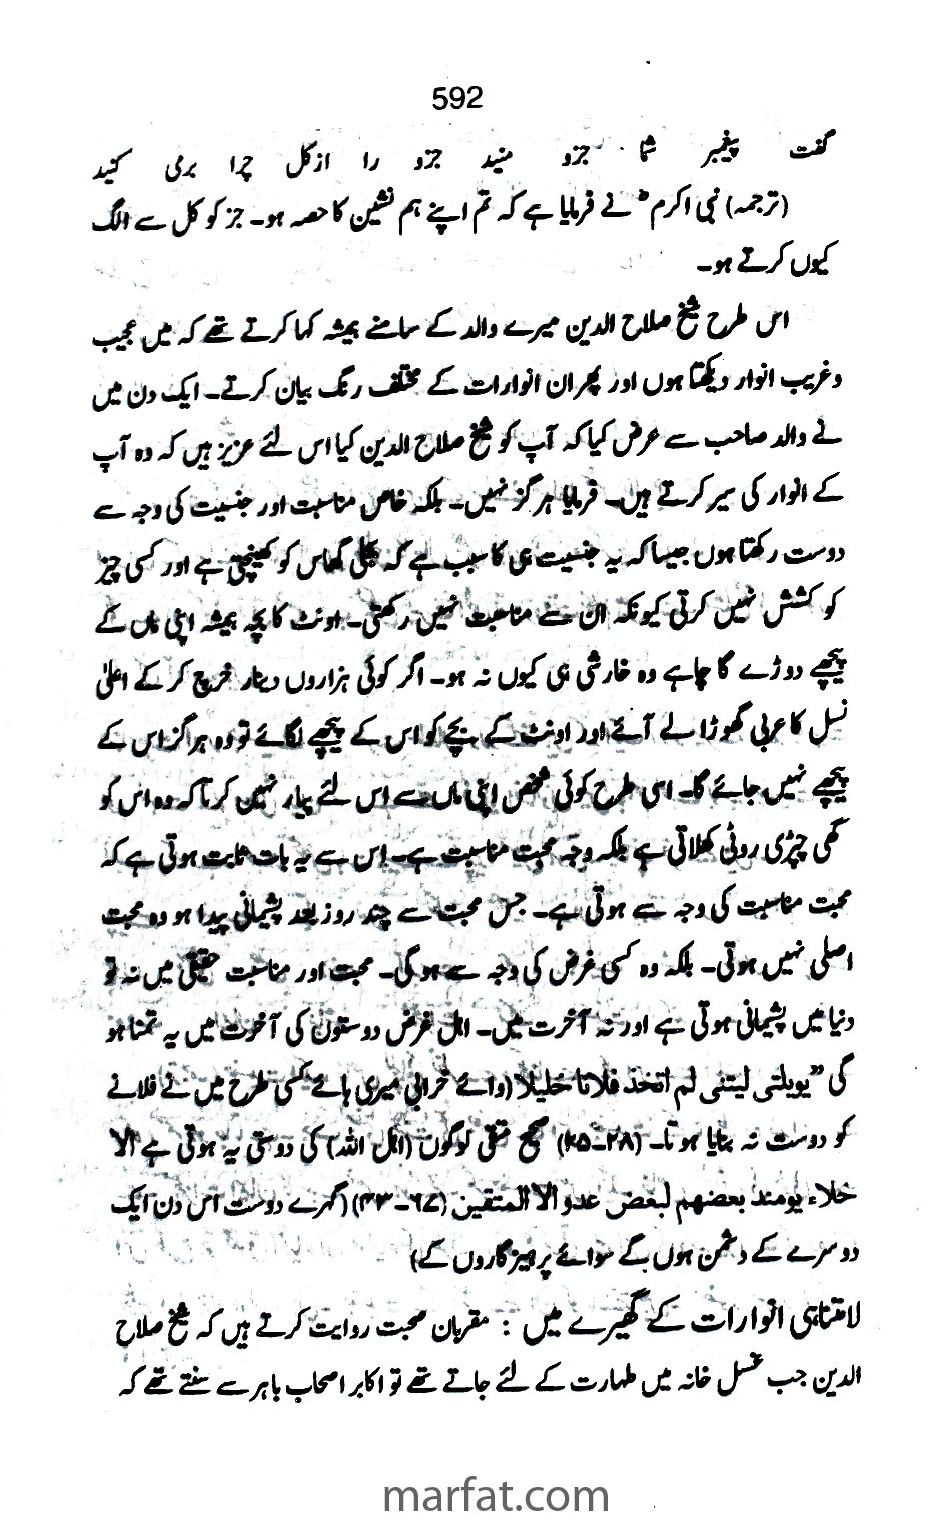 592
گفت پیغمبر شما جزو منید جزو را از کل چرا بر می کنید
(ترجمہ) نبی اکرمؐ نے فرمایا ہے کہ تم اپنے ہم نشین کا حصہ ہو۔ جز کو کل سے الگ
کیوں کرتے ہو۔
اس طرح شیخ صلاح الدین میرے والد کے سامنے ہمیشہ کہا کرتے تھے کہ میں عجیب
و غریب انوار دیکھتا ہوں اور پھر ان انوارات کے مختلف رنگ بیان کرتے۔ ایک دن میں
نے والد صاحب سے عرض کیا کہ آپ کو شیخ صلاح الدین کیا اس لئے عزیز ہیں کہ وہ آپ
کے انوار کی سیر کرتے ہیں۔ فرمایا ہرگز نہیں۔ بلکہ خاص مناسبت اور جنسیت کی وجہ سے
دوست رکھتا ہوں جیسا کہ یہ جنسیت ہی کا سبب ہے کہ بجلی گھاس کو کھینچتی ہے اور کسی چیز
کو کشش نہیں کرتی کیونکہ ان سے مناسبت نہیں رکھتی۔ اونٹ کا بچہ ہمیشہ اپنی ماں کے
پیچھے دوڑے گا چاہے وہ خارشی ہی کیوں نہ ہو۔ اگر کوئی ہزاروں دینار خرچ کر کے اعلیٰ
نسل کا عربی گھوڑا لے آئے اور اونٹ کے بچے کو اس کے پیچھے لگائے تو وہ ہرگز اس کے
پیچھے نہیں جائے گا۔ اسی طرح کوئی شخص اپنی ماں سے اس لئے پیار نہیں کرتا کہ وہ اس کو
گھی چپڑی روٹی کھلاتی ہے بلکہ وجہ محبت مناسبت ہے۔ اس سے یہ بات ثابت ہوتی ہے کہ
محبت مناسبت کی وجہ سے ہوتی ہے۔ جس محبت سے چند روز بعد پشیمانی پیدا ہو وہ محبت
اصلی نہیں ہوتی۔ بلکہ وہ کسی غرض کی وجہ سے ہوگی۔ محبت اور مناسبت حقیقی میں نہ تو
دنیا میں پشیمانی ہوتی ہے اور نہ آخرت میں۔ اہل غرض دوستوں کی آخرت میں یہ تمنا ہو
گی "یویلتی لیتنی لم اتخذ فلانا خلیلا (وائے خرابی میری ہائے کسی طرح میں نے فلانے
کو دوست نہ بنایا ہوتا۔ (۲۸۔۲۵) صحیح متقی لوگوں (اہل اللہ) کی دوستی یہ ہوتی ہے الا
خلاء یومئذ بعضھم لبعض عدو الا المتقین (۶۷۔۴۳) (گہرے دوست اس دن ایک
دوسرے کے دشمن ہوں گے سوائے پرہیزگاروں کے)
لامتناہی انوارات کے گھیرے میں : مقربان محبت روایت کرتے ہیں کہ شیخ صلاح
الدین جب غسل خانہ میں طہارت کے لئے جاتے تھے تو اکابر اصحاب باہر سے سنتے تھے کہ
marfat.com